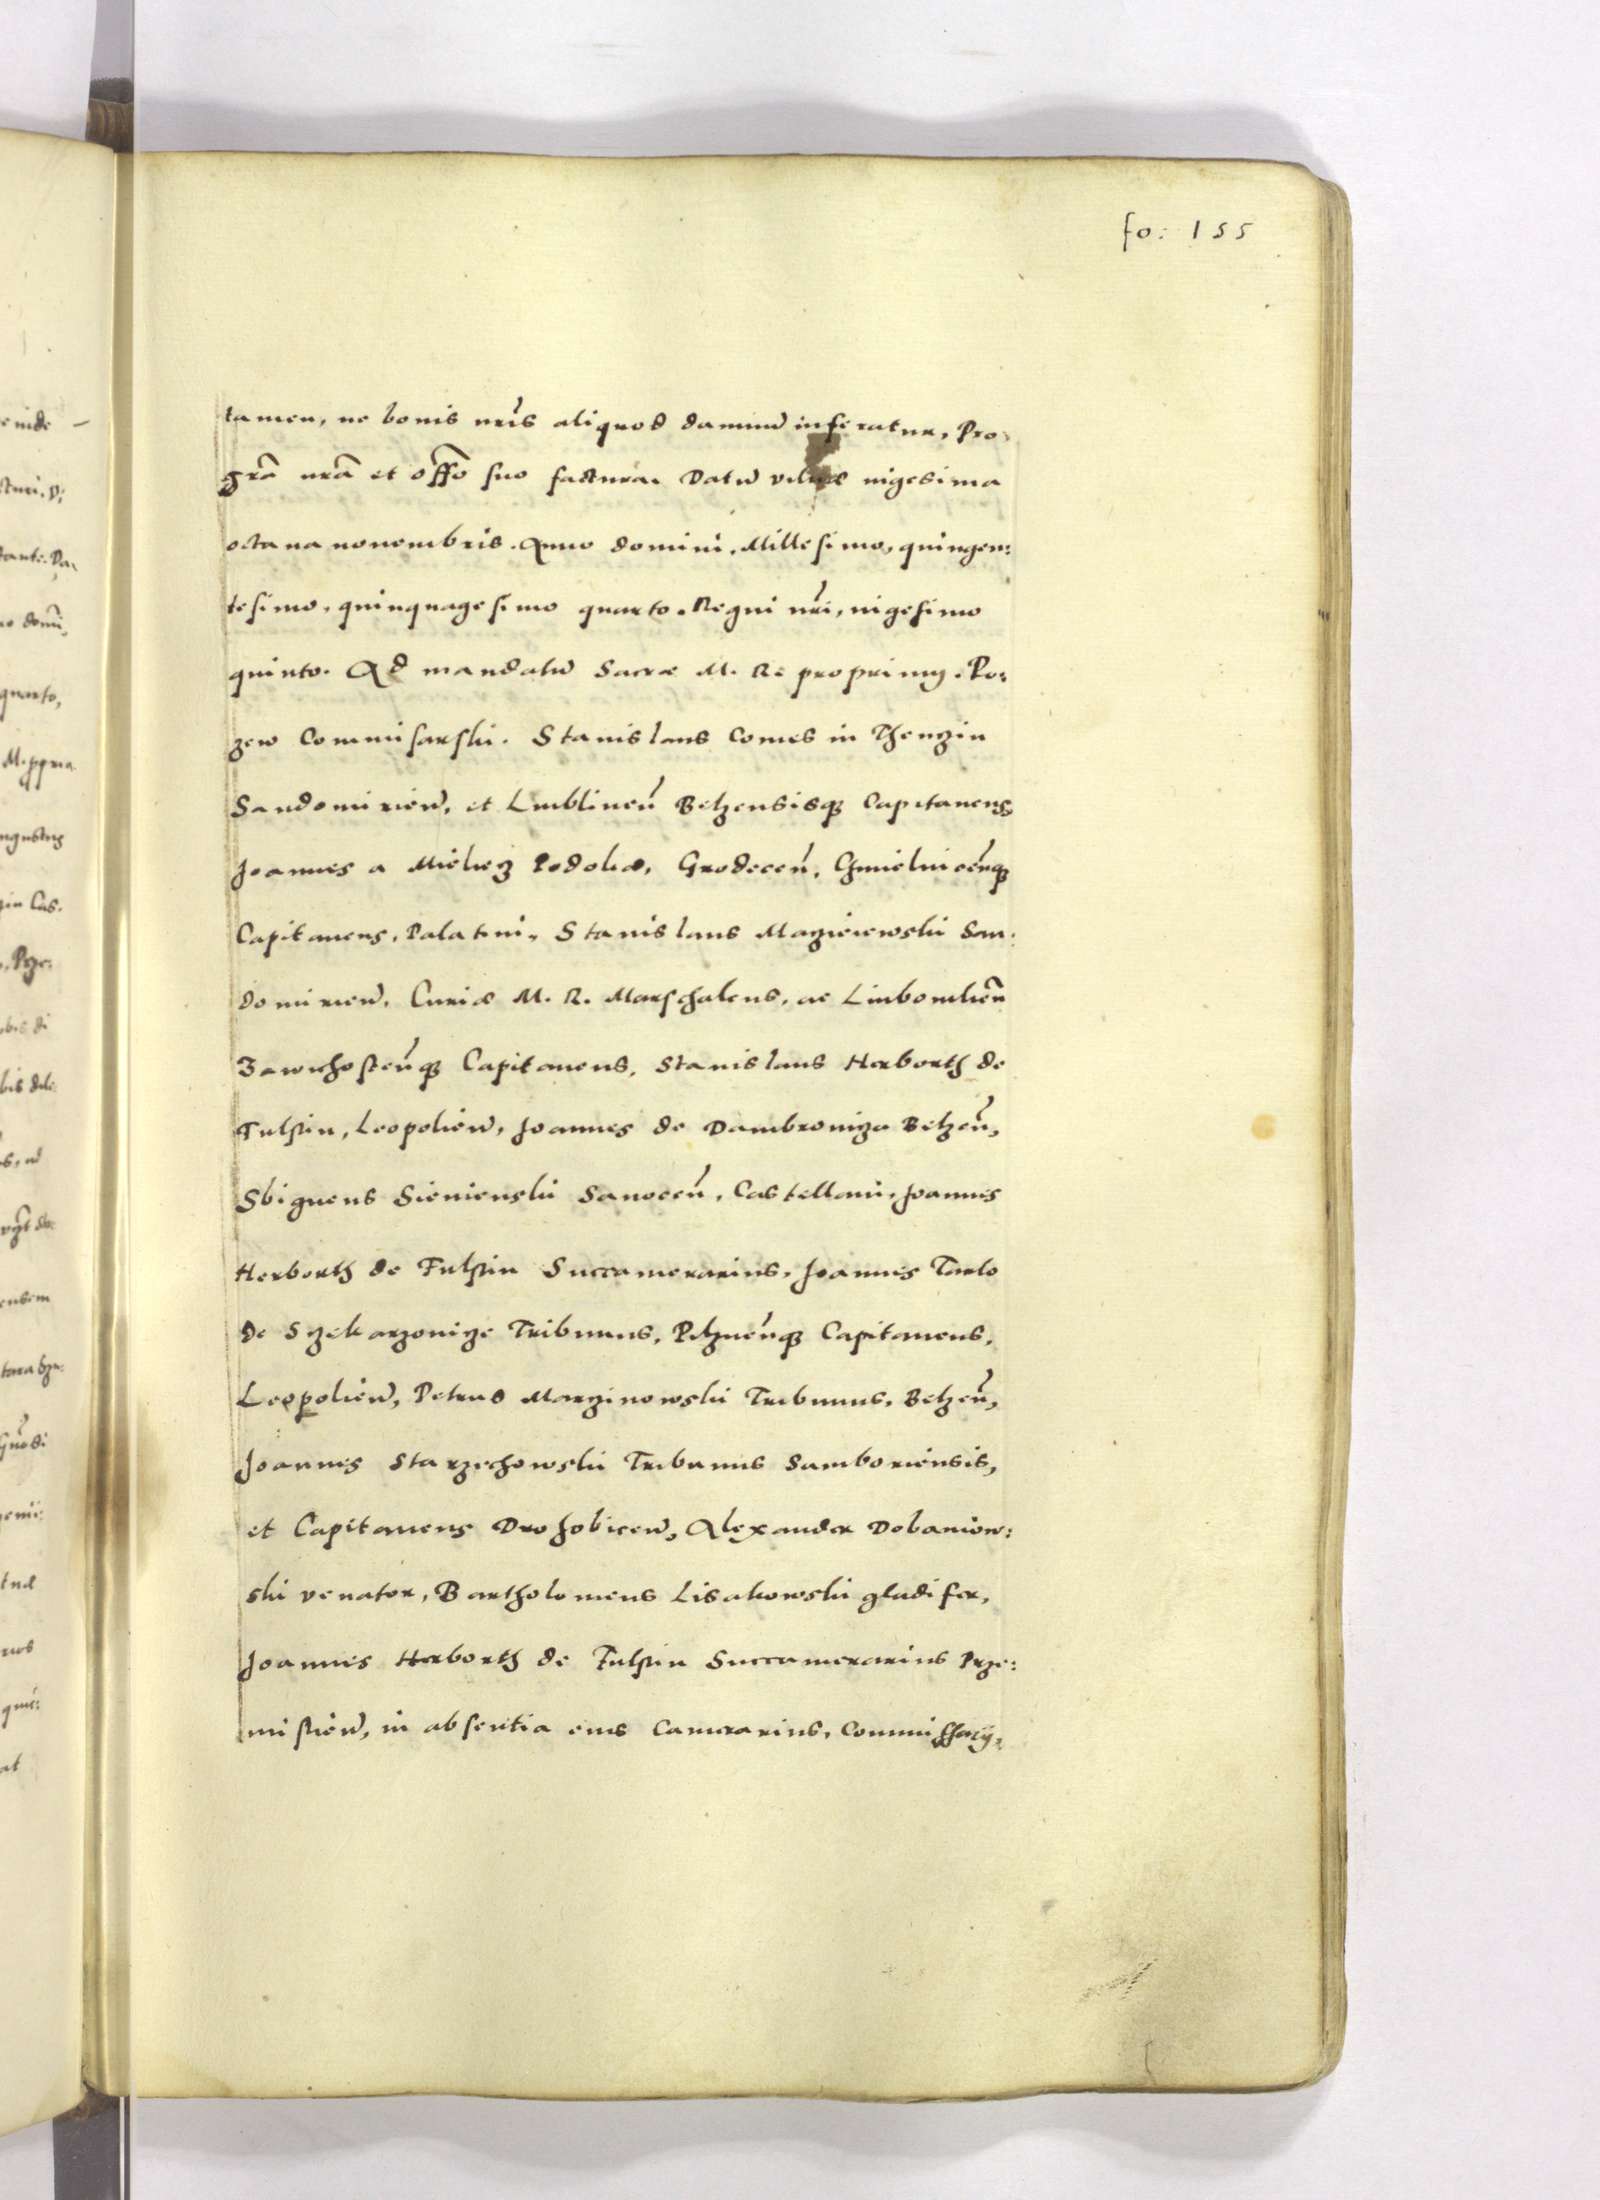 fo: 155
tamen, ne bonis nr̃is aliquod damnũ inferatur, Pro
gr̃a nr̃a et offõ suo factura. Datũ vilnæ vigesima
octaua nouembris. Anno domini, Millesimo, quingen:
tesimo, quinquagesimo quarto. Regni nr̃i, vigesimo
quinto. Ad mandatũ Sacræ M. Re proprium. Po:
zew Commisarski. Stanislaus Comes in Thenzin
Sandomirien̄, et Lublinen̄ Belzensisq₃ Capitaneus
Joannes a Mieliecz Podoliæ, Grodecen̄, Chmielnicen̄q₃
Capitaneus, Palatini, Stanislaus Maczieiewski San:
domirien̄, Curiæ M. R. Marschaleus, ac Liubomlien̄
Zawichosten̄q₃ Capitaneus, Stanislaus Herborth de
Fulstin, Leopolien̄, Joannes de Dambrowicza Belzen̄,
Sbigneus Sienienski Sanocen̄, Castellani, Joannes
Herborth de Fulstin Succamerarius, Joannes Tarlo
de Szekarzowicze Tribunus, Pilznen̄q₃ Capitaneus,
Leopolien̄, Petrus Marzinowski Tribunus, Belzen̄,
Joannes Starzechowski Tribunus Samboriensis,
et Capitaneus Drohobicen̄, Alexander Dobaniow:
ski venator, Bartholomeus Lisakowski gladifer,
Joannes Herborth de Fulstin Succamerarius Prze:
mislien̄, in absentia eius Camerarius, Commissarij,